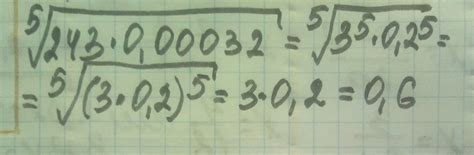 ⁵√243·0,00032 = ⁵√3⁵·0,2⁵ =
= ⁵√(3·0,2)⁵ = 3·0,2 = 0,6